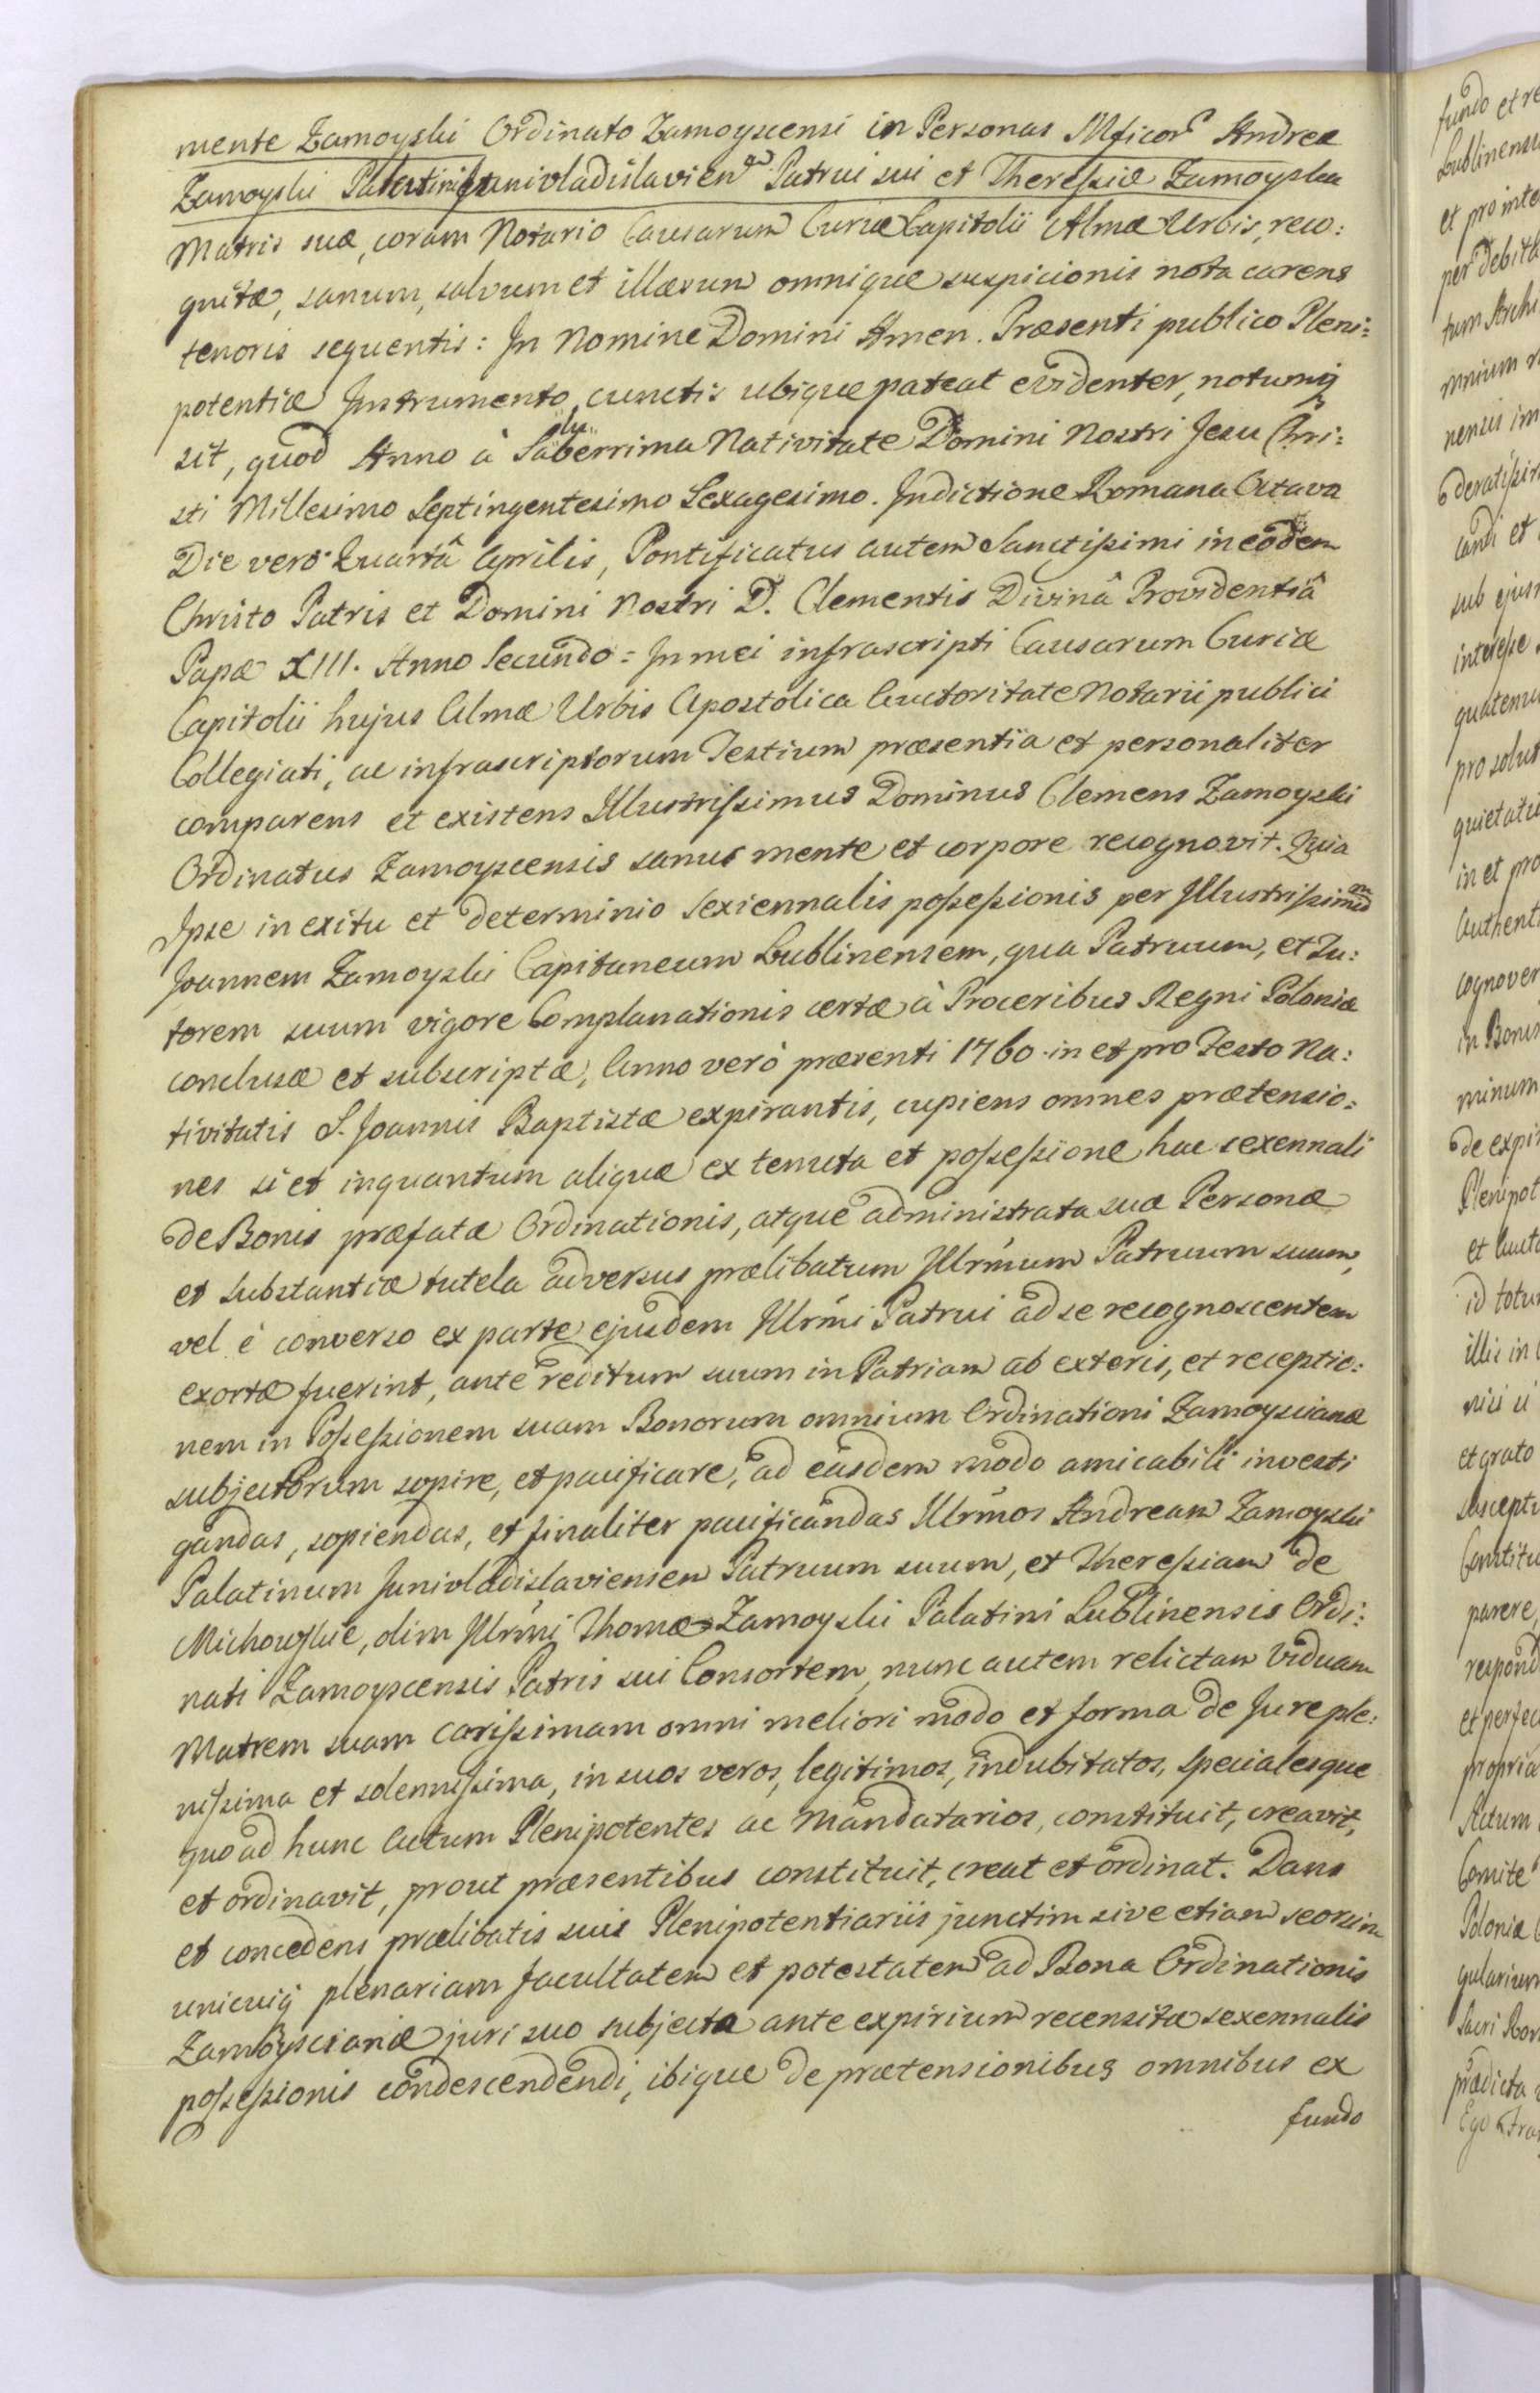 mente Zamoyski Ordinato Zamoyscensi in Personas Mficor Andreæ
Zamoyski Palatini Junivladislavien Patrui sui et Theressiæ Zamoyska
Matris suæ, coram Notario Causarum Curiæ Capitolii Almæ Urbis, reco:
gnitæ, sanum, salvum et illæsum omnique suspicionis nota carens
tenoris sequentis: In Nomine Domini Amen. Præsenti publico Pleni:
potentiæ Instrumento, cunctis ubique pateat evidenter, notumq
sit, quod Anno à Saluberrima Nativitate Domini Nostri Jesu Chri:
sti Millesimo Septingentesimo Sexagesimo. Indictione Romana Octava
Die verò Quartâ Aprilis, Pontificatus autem Sanctissimi in eodem
Christo Patris et Domini Nostri D. Clementis Divinâ Providentiâ
Papæ XIII. Anno Secundo = In mei infrascripti Causarum Curiæ
Capitolii hujus Almæ Urbis Apostolica Auctoritate Notarii publici
Collegiati, ac infrascriptorum Testium præsentia et personaliter
comparens et existens Illustrissimus Dominus Clemens Zamoyski
Ordinatus Zamoyscensis sanus mente et corpore recognovit. Quia
Ipse in exitu et determinio sexiennalis possessionis per Illustrissimum
Joannem Zamoyski Capitaneum Lublinensem, qua Patruum, et Tu:
torem suum vigore Complanationis certæ à Proceribus Regni Poloniæ
conclusæ et subscriptæ, Anno verò præsenti 1760 in et pro Festo Na:
tivitatis S. Joannis Baptistæ expirantis, cupiens omnes prætensio:
nes si et inquantum aliquæ ex tenuta et possessione hac sexennali
de Bonis præfatæ Ordinationis, atque administrata suæ Personæ
et substantiæ tutela adversus prælibatum Illrmum Patruum suum,
vel è converso ex parte ejusdem Illrmi Patrui ad se recognoscentem
exortæ fuerint, ante reditum suum in Patriam ab exteris, et receptio:
nem in Possessionem suam Bonorum omnium Ordinationi Zamoyscianæ
subjectorum sopire, et pacificare, ad easdem modo amicabili investi
gandas, sopiendas, et finaliter pacificandas Illrmos Andream Zamoyski
Palatinum Junivladislaviensem Patruum suum, et Theressiam de
Michowskie, olim Illrmi Thomæ Zamoyski Palatini Lublinensis Ordi:
nati Zamoyscensis Patris sui Consortem, nunc autem relictam Viduam
Matrem suam carissimam omni meliori modo et forma de Jure ple:
nissima et solennissima, in suos veros, legitimos, indubitatos, specialesque
quo ad hunc Actum Plenipotentes ac Mandatarios, constituit, creavit,
et ordinavit, prout præsentibus constituit, creat et ordinat. Dans
et concedens prælibatis suis Plenipotentiariis junctim sive etiam seorsim
unicuiq plenariam facultatem et potestatem ad Bona Ordinationis
Zamoyscianæ juri suo subjecta ante expirium recensitæ sexennalis
possessionis condescendendi, ibique de prætensionibus omnibus ex
fundo
fundo et re
Lublinens
et pro inte
per debita
tum Archi
mnium
nensis im
deratissim
candi et
sub ejus
interesse
quatenus
pro solut
quietati
in et pro
Authent
cognover
in Bonis
minum
de expi
Plenipot
et Aucto
id totu
illis in
nisi si
et grato
suscept
Constitu
parere,
respond
et perfec
propria
Actum
Comite
Poloniæ
gularium
Sacri Rom
prædicta
Ego Fra